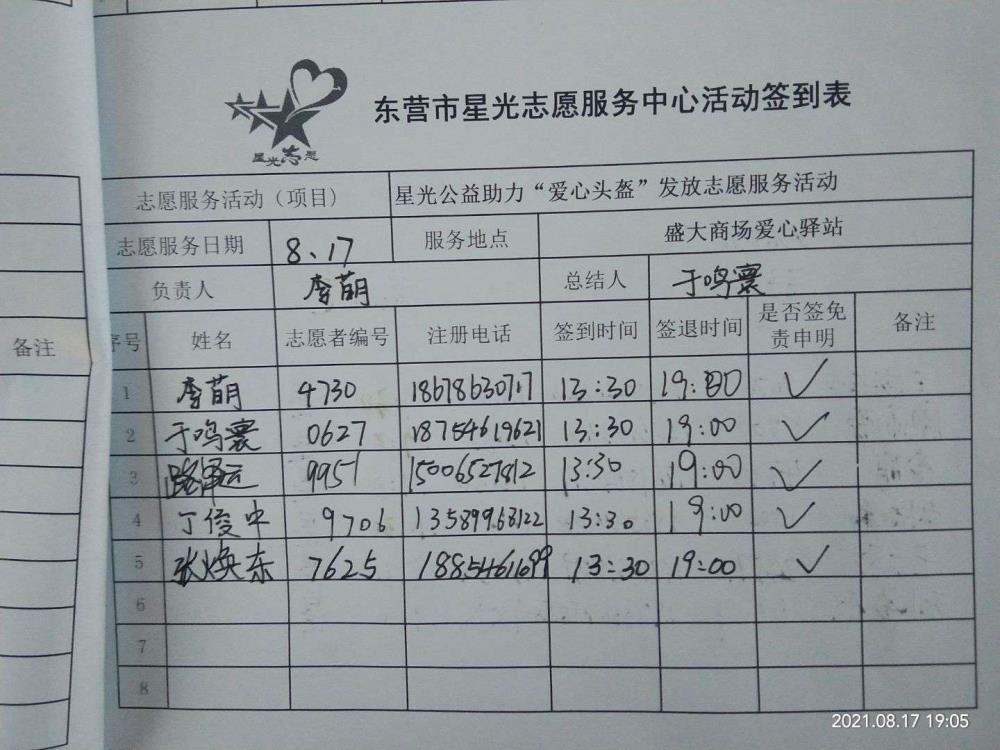 星光志愿
东营市星光志愿服务中心活动签到表
志愿服务活动(项目) 星光公益助力“爱心头盔”发放志愿服务活动
志愿服务日期 8.17 服务地点 盛大商场爱心驿站
负责人 李萌 总结人 于鸣寰
备注 序号 姓名 志愿者编号 注册电话 签到时间 签退时间 是否签免责申明 备注
1 李萌 4730 18678630717 13:30 19:00 ✓
2 于鸣寰 0627 18754619621 13:30 19:00 ✓
3 路 运 9951 15006527812 13:30 19:00 ✓
4 丁俊中 9706 13589968122 13:30 19:00 ✓
5 张焕东 7625 18854661699 13:30 19:00 ✓
6
7
8
2021.08.17 19:05